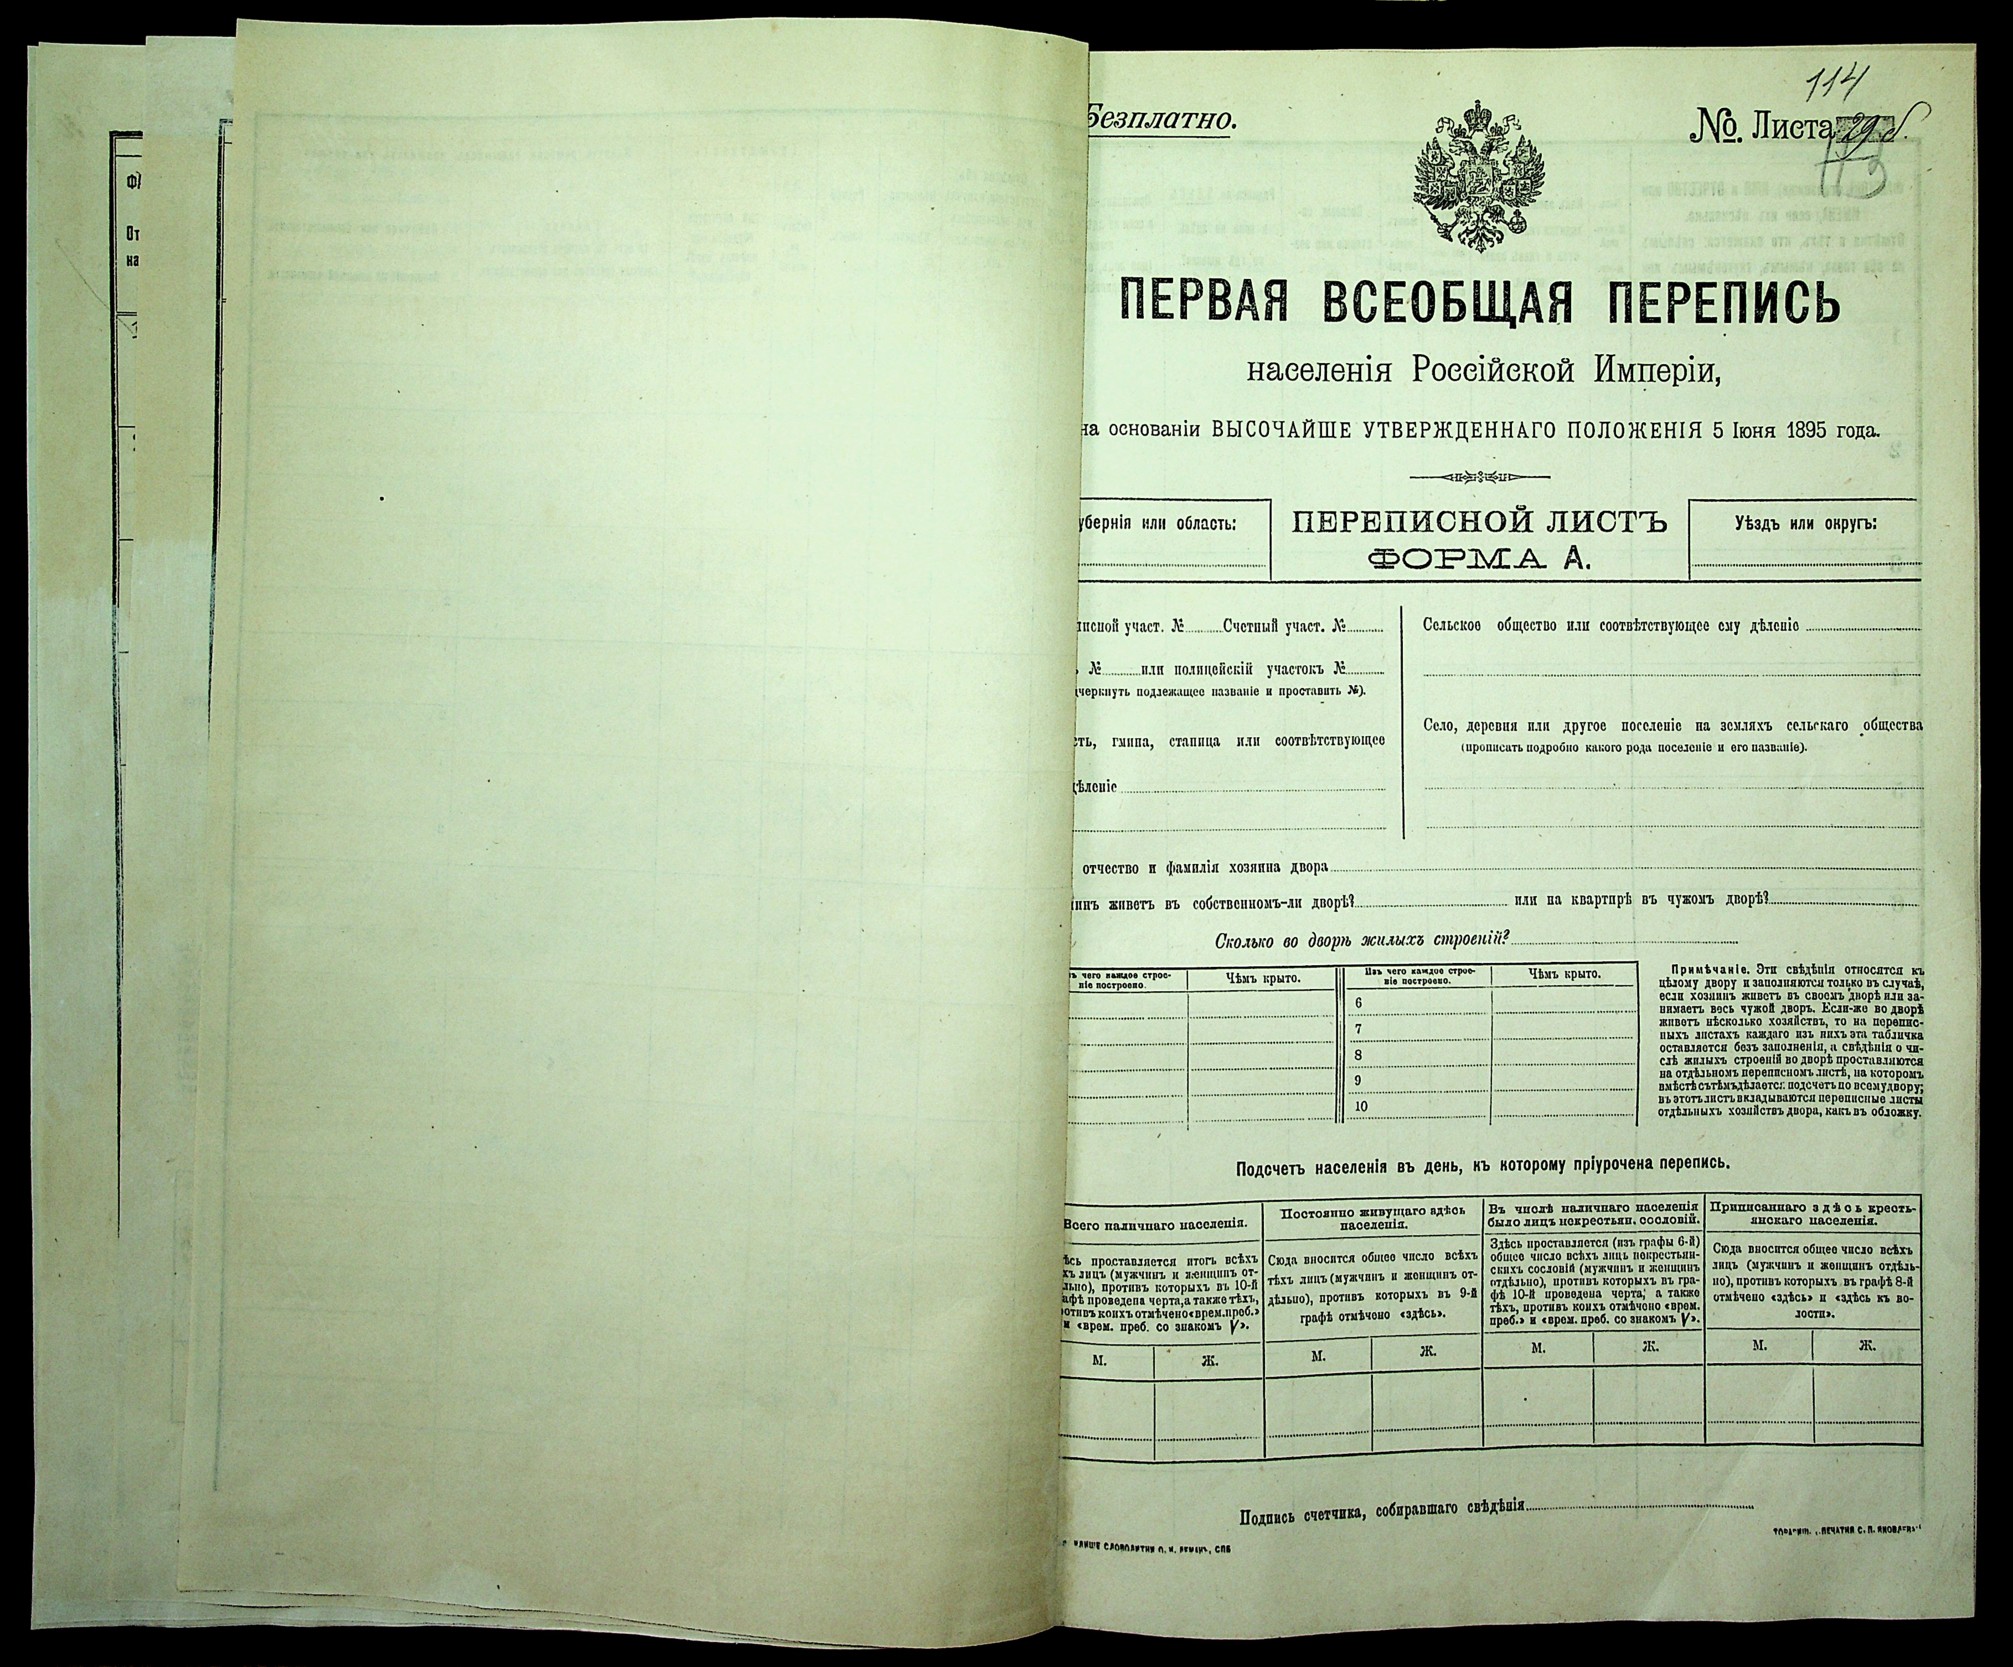 114
Безплатно.
№. Листа 29 б.
113
ПЕРВАЯ ВСЕОБЩАЯ ПЕРЕПИСЬ
населенія Россійской Имперіи,
на основаніи ВЫСОЧАЙШЕ УТВЕРЖДЕННАГО ПОЛОЖЕНІЯ 5 Іюня 1895 года.
убернія или область:
ПЕРЕПИСНОЙ ЛИСТЪ
ФОРМА А.
Уѣздъ или округъ:
исной участ. № Счетный участ. №
№ или полицейскій участокъ №
черкнуть подлежащее названіе и проставить №).
сть, гмина, станица или соотвѣтствующее
дѣленіе
Сельское общество или соотвѣтствующее ему дѣленіе
Село, деревня или другое поселеніе на земляхъ сельскаго общества
(прописать подробно какого рода поселеніе и его названіе).
отчество и фамилія хозяина двора
инъ живетъ въ собственномъ-ли дворѣ? или на квартирѣ въ чужомъ дворѣ?
Сколько во дворѣ жилыхъ строеній?
ъ чего каждое строе-
ніе построено.
Чѣмъ крыто.
Изъ чего каждое строе-
ніе построено.
Чѣмъ крыто.
6
7
8
9
10
Примѣчаніе. Эти свѣдѣнія относятся къ
цѣлому двору и заполняются только въ случаѣ,
если хозяинъ живетъ въ своемъ дворѣ или за-
нимаетъ весь чужой дворъ. Если-же во дворѣ
живетъ нѣсколько хозяйствъ, то на перепис-
ныхъ листахъ каждаго изъ нихъ эта табличка
оставляется безъ заполненія, а свѣдѣнія о чи-
слѣ жилыхъ строеній во дворѣ проставляются
на отдѣльномъ переписномъ листѣ, на которомъ
вмѣстѣ съ тѣмъ дѣлается подсчетъ по всему двору;
въ этотъ листъ вкладываются переписные листы
отдѣльныхъ хозяйствъ двора, какъ въ обложку.
Подсчетъ населенія въ день, къ которому пріурочена перепись.
Всего наличнаго населенія.
ѣсь проставляется итогъ всѣхъ
хъ лицъ (мужчинъ и женщинъ от-
льно), противъ которыхъ въ 10-й
афѣ проведена черта, а также тѣхъ,
отивъ коихъ отмѣчено «врем. преб.»
и «врем. преб. со знакомъ V».
Постоянно живущаго здѣсь
населенія.
Сюда вносится общее число всѣхъ
тѣхъ лицъ (мужчинъ и женщинъ от-
дѣльно), противъ которыхъ въ 9-й
графѣ отмѣчено «здѣсь».
Въ числѣ наличнаго населенія
было лицъ некрестьян. сословій.
Здѣсь проставляется (изъ графы 6-й)
общее число всѣхъ лицъ некрестьян-
скихъ сословій (мужчинъ и женщинъ
отдѣльно), противъ которыхъ въ гра-
фѣ 10-й проведена черта, а также
тѣхъ, противъ коихъ отмѣчено «врем.
преб.» и «врем. преб. со знакомъ V».
Приписаннаго здѣсь кресть-
янскаго населенія.
Сюда вносится общее число всѣхъ
лицъ (мужчинъ и женщинъ отдѣль-
но), противъ которыхъ въ графѣ 8-й
отмѣчено «здѣсь» и «здѣсь къ во-
лости».
М. Ж. М. Ж. М. Ж. М. Ж.
Подпись счетчика, собиравшаго свѣдѣнія
СЛОВОЛИТНИ О. И. ЛЕМАНЪ, СПБ
ТОВАРИЩ. „ПЕЧАТНЯ С. П. ЯКОВЛЕВА“